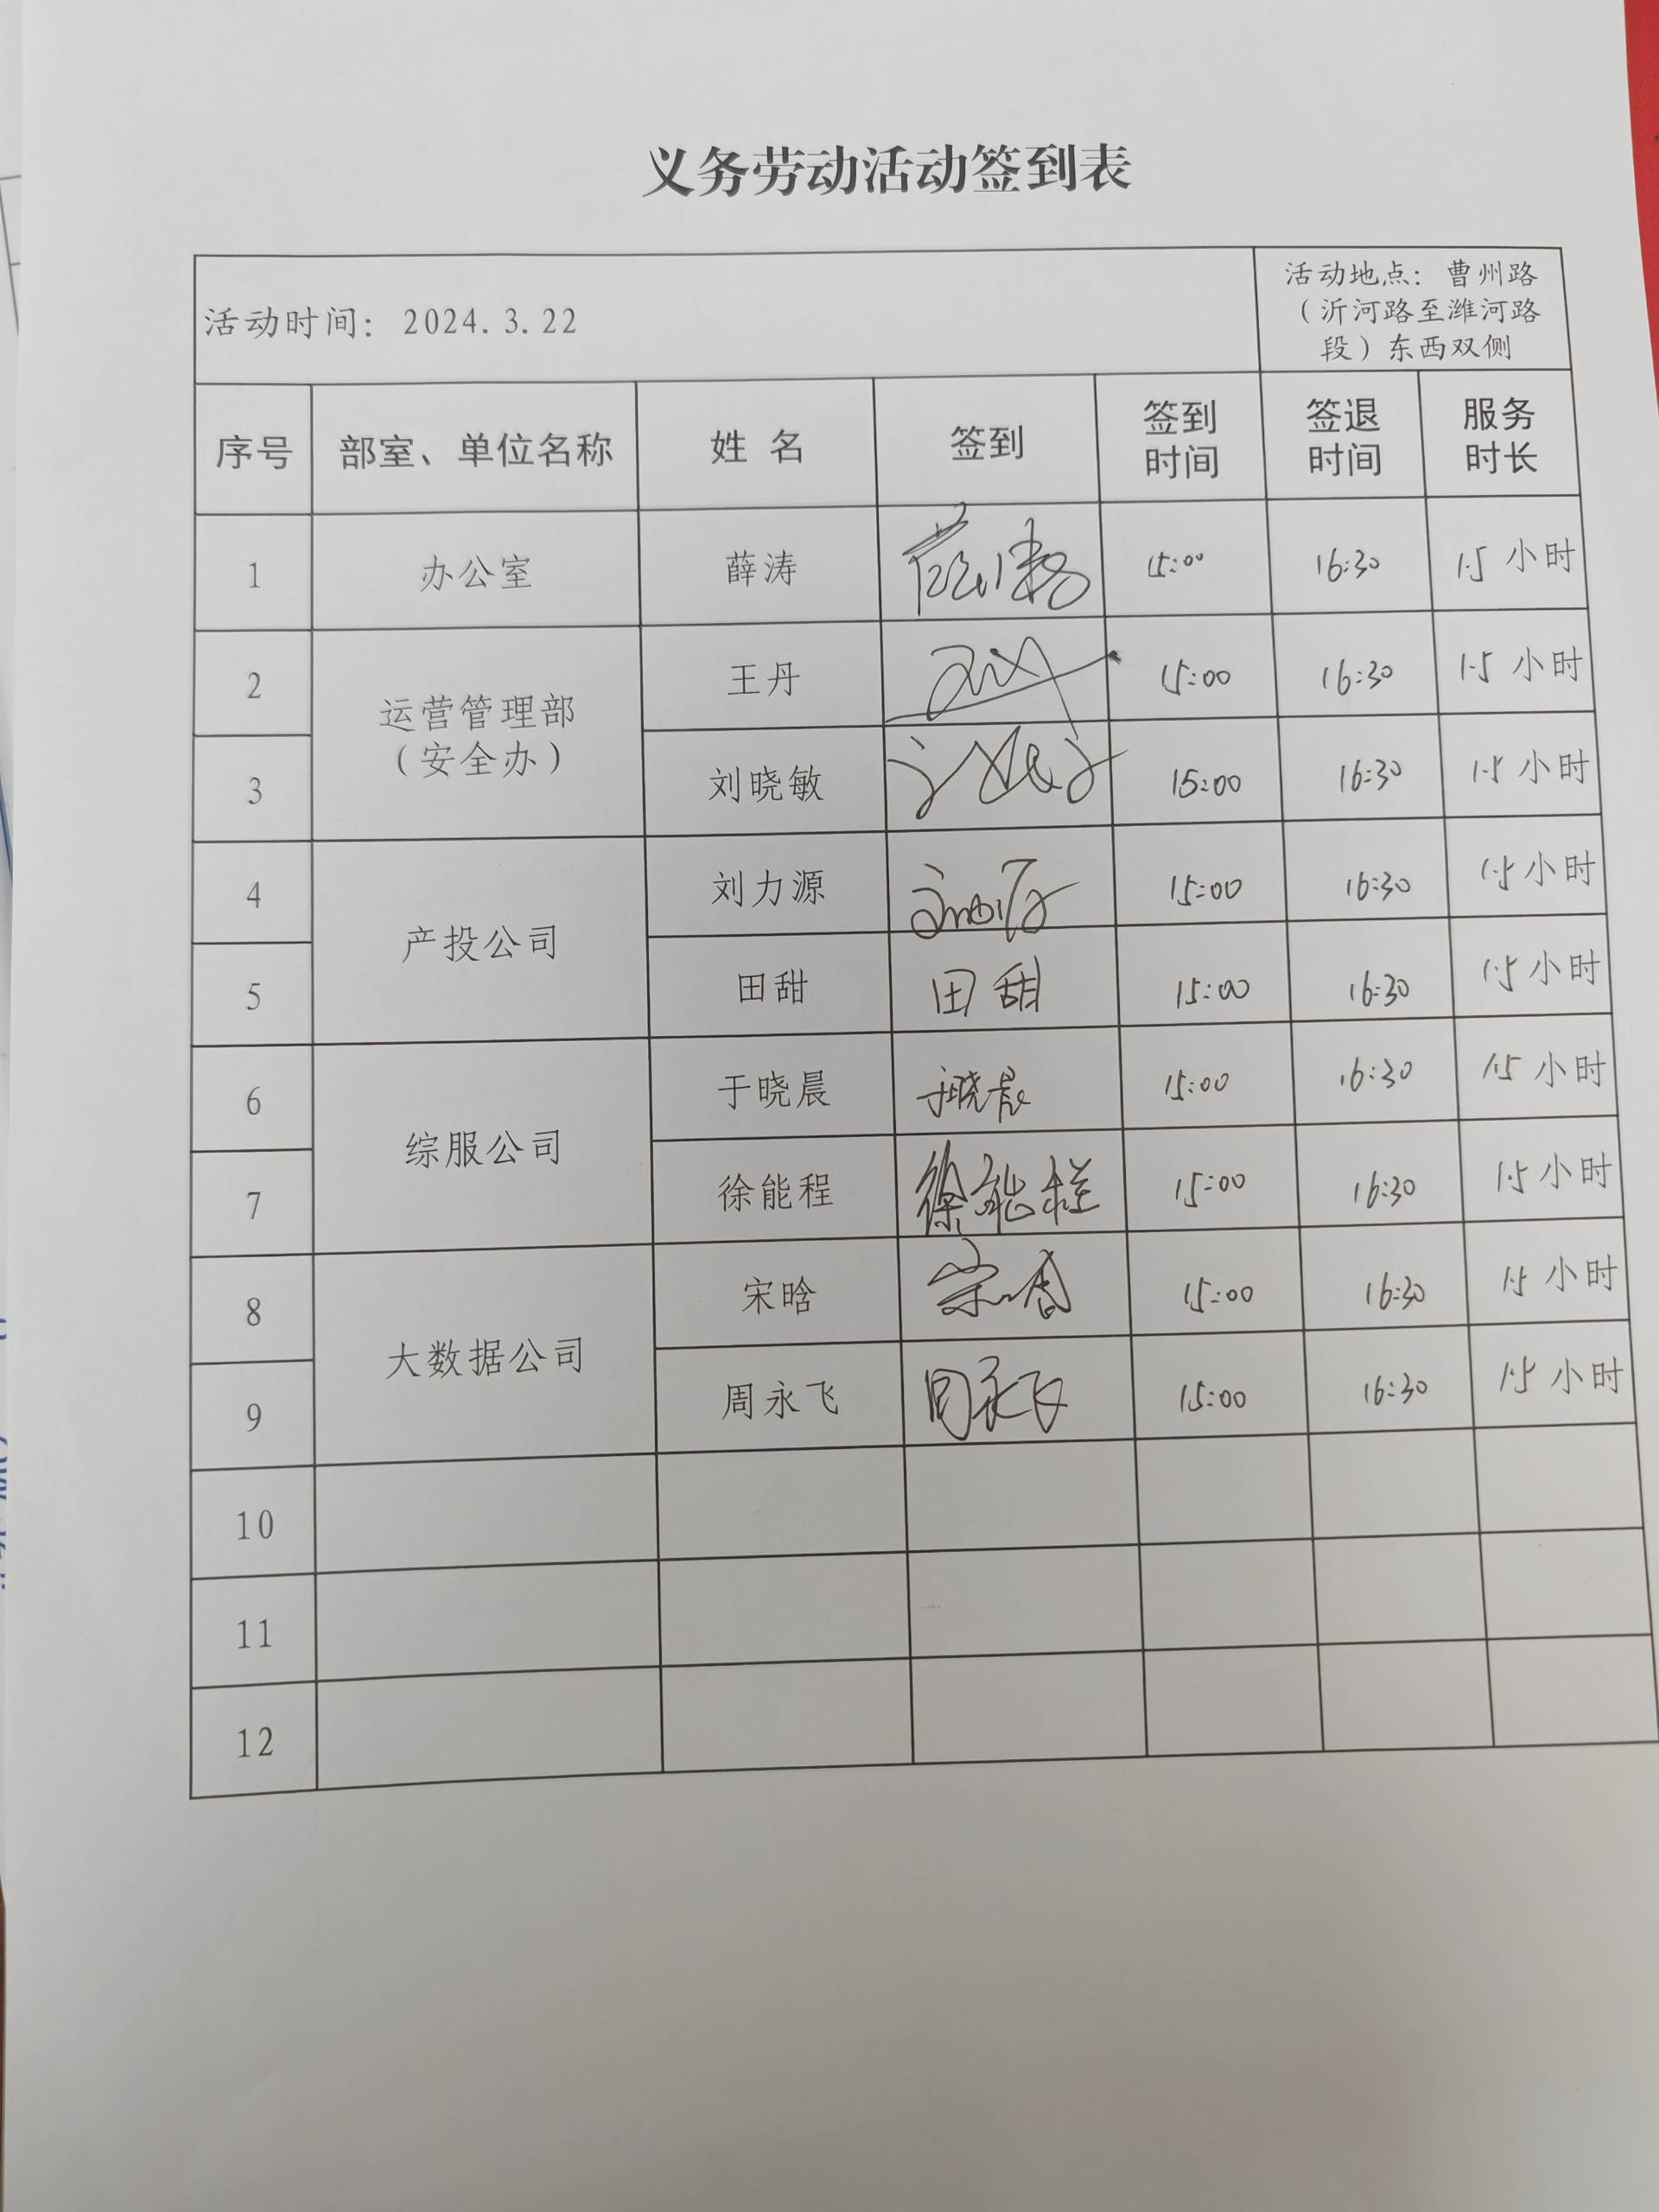 义务劳动活动签到表
活动时间: 2024.3.22
活动地点: 曹州路
(沂河路至潍河路
段)东西双侧
序号 部室、单位名称 姓 名 签到 签到时间 签退时间 服务时长
1 办公室 薛涛 薛涛 15:00 16:30 1.5 小时
2 运营管理部(安全办) 王丹 15:00 16:30 1.5 小时
3 刘晓敏 15:00 16:30 1.5 小时
4 产投公司 刘力源 15:00 16:30 1.5 小时
5 田甜 田甜 15:00 16:30 1.5 小时
6 综服公司 于晓晨 于晓晨 15:00 16:30 1.5 小时
7 徐能程 徐能程 15:00 16:30 1.5 小时
8 大数据公司 宋晗 15:00 16:30 1.5 小时
9 周永飞 周永飞 15:00 16:30 1.5 小时
10
11
12